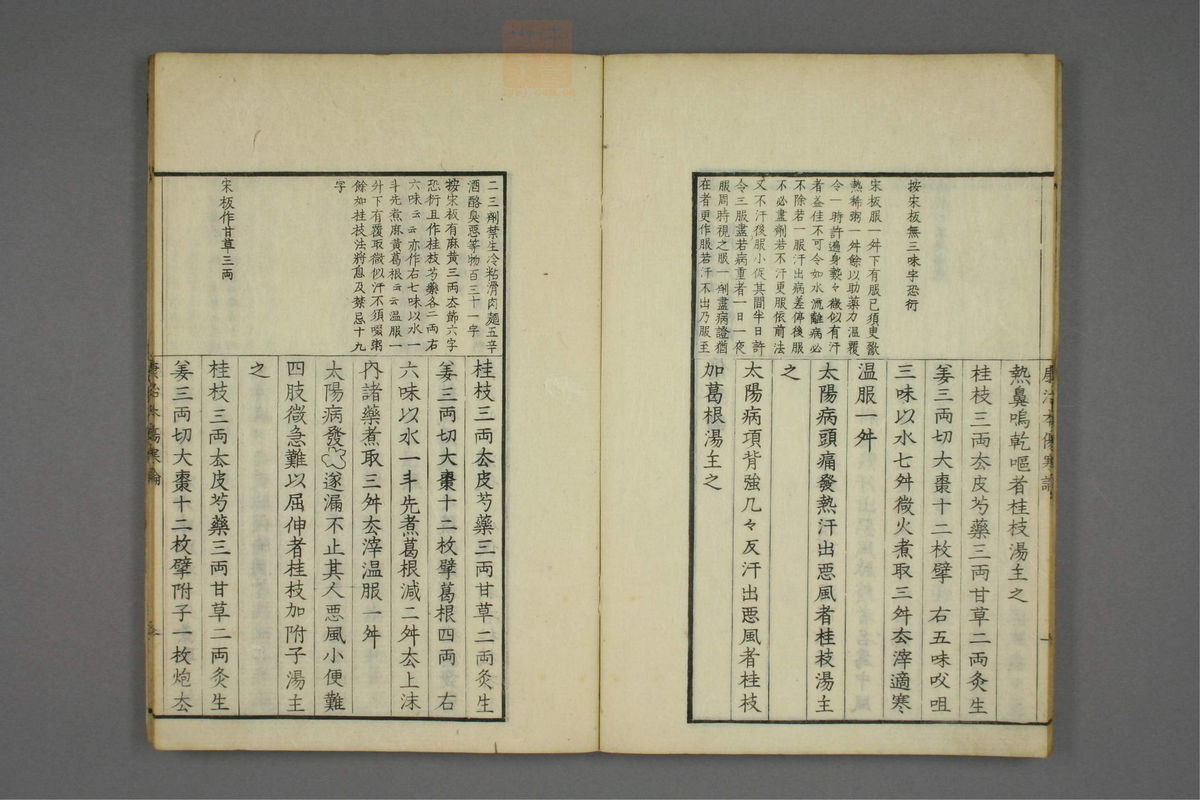 康治本傷寒論
按宋板無三味字恐衍
宋板服一舛下有服已須更歠
熱稀粥一舛餘以助藥力溫覆
令一時許遍身漐々微似有汗
者益佳不可令如水流離病必
不除若一服汗出病差停後服
不必盡劑若不汗更服依前法
又不汗後服小促其間半日許
令三服盡若病重者一日一夜
服周時視之服一劑盡病證猶
在者更作服若汗不出乃服至
熱鼻鳴乾嘔者桂枝湯主之
桂枝三両厺皮芍藥三両甘草二両灸生
姜三両切大棗十二枚擘 右五味㕮咀
三味以水七舛微火煮取三舛厺滓適寒
温服一舛
太陽病頭痛發熱汗出惡風者桂枝湯主
之
太陽病項背強几々反汗出惡風者桂枝
加葛根湯主之
二三劑禁生冷粘滑肉麺五辛
酒酪臭惡等物百三十一字
按宋板有麻黃三両厺節六字
恐衍且作桂枝芍藥各二両右
六味云云亦作右七味以水一
斗先煮麻黃葛根云云温服一
舛下有覆取微似汗不須啜粥
餘如桂技法將息及禁忌十九
字
宋板作甘草三両
桂枝三両厺皮芍藥三両甘草二両灸生
姜三両切大棗十二枚擘葛根四両 右
六味以水一斗先煮葛根減二舛厺上沫
內諸藥煮取三舛厺滓温服一舛
太陽病發 遂漏不止其人惡風小便難
四肢微急難以屈伸者桂枝加附子湯主
之
桂枝三両厺皮芍藥三両甘草二両灸生
姜三両切大棗十二枚擘附子一枚炮厺
康治本傷寒論